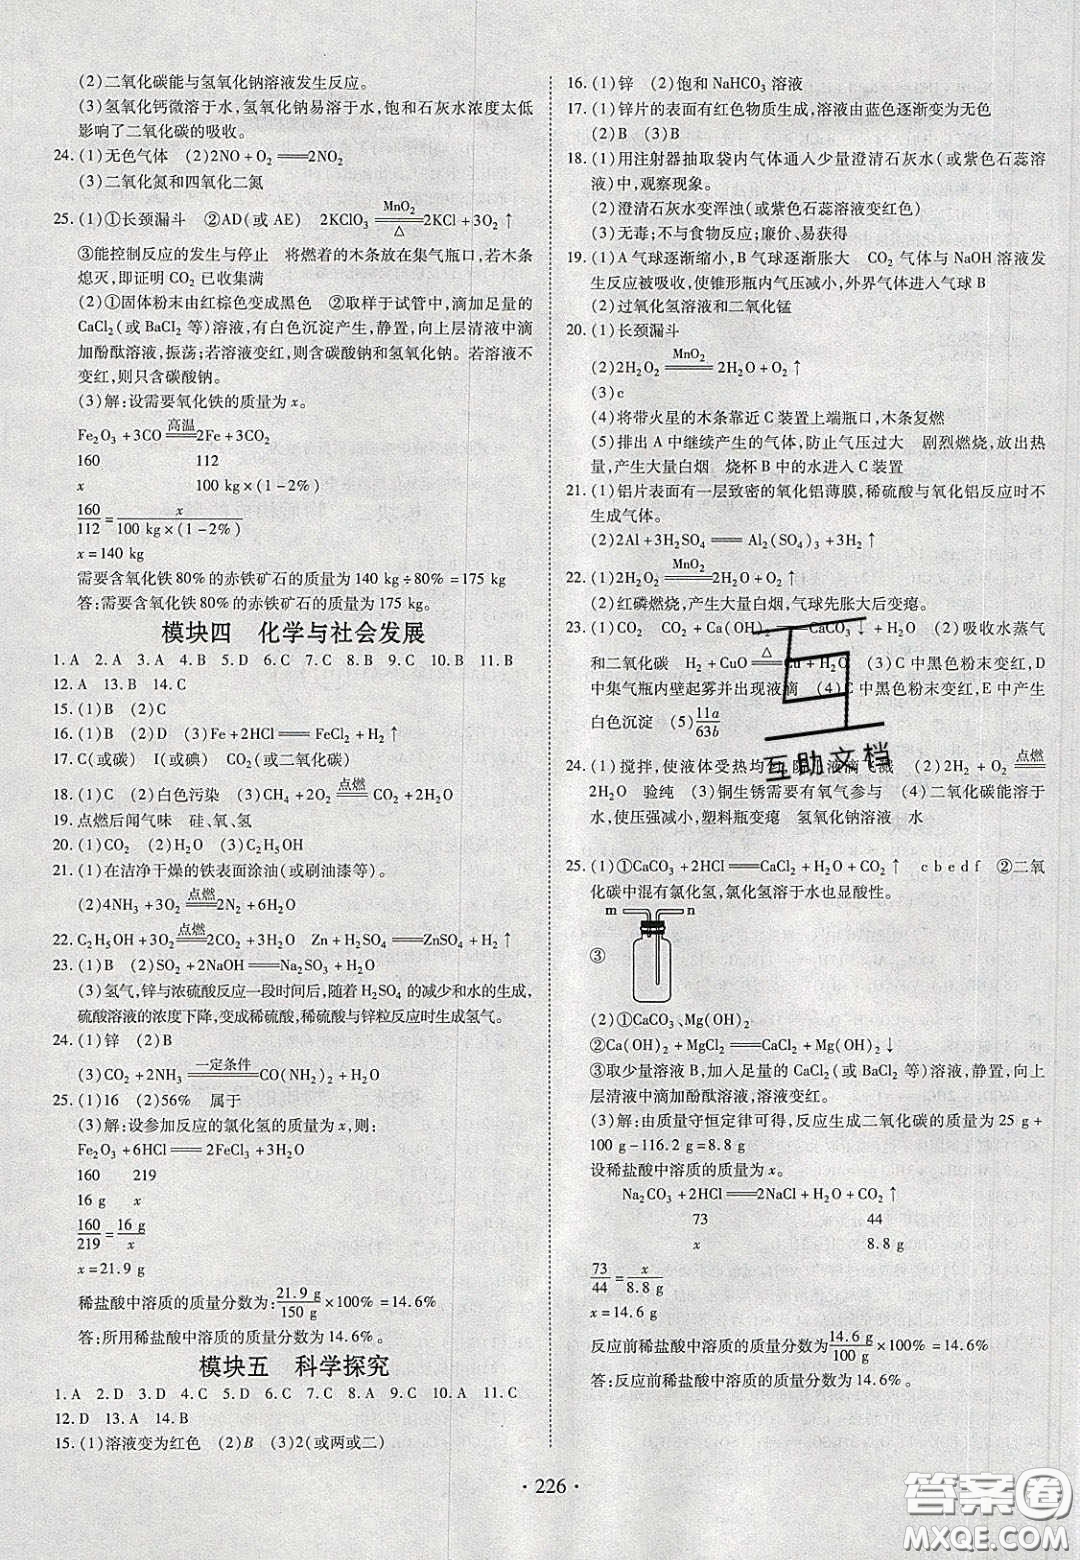 (2)二氧化碳能与氢氧化钠溶液发生反应。
(3)氢氧化钙微溶于水,氢氧化钠易溶于水,饱和石灰水浓度太低
影响了二氧化碳的吸收。
24.(1)无色气体 (2)2NO+O₂══2NO₂
(3)二氧化氮和四氧化二氮
25.(1)①长颈漏斗 ②AD(或AE) 2KClO₃ MnO₂══△ 2KCl+3O₂↑
③能控制反应的发生与停止 将燃着的木条放在集气瓶口,若木条
熄灭,即证明CO₂已收集满
(2)①固体粉末由红棕色变成黑色 ②取样于试管中,滴加足量的
CaCl₂(或BaCl₂等)溶液,有白色沉淀产生,静置,向上层清液中滴
加酚酞溶液,振荡;若溶液变红,则含碳酸钠和氢氧化钠。若溶液不
变红,则只含碳酸钠。
(3)解:设需要氧化铁的质量为x。
Fe₂O₃+3CO 高温══ 2Fe+3CO₂
160 112
x 100 kg×(1-2%)
160/112=x/(100 kg×(1-2%))
x=140 kg
需要含氧化铁80%的赤铁矿石的质量为140 kg÷80%=175 kg
答:需要含氧化铁80%的赤铁矿石的质量为175 kg。
模块四 化学与社会发展
1.A 2.A 3.A 4.B 5.D 6.C 7.C 8.B 9.C 10.C 11.B
12.A 13.B 14.C
15.(1)B (2)C
16.(1)B (2)D (3)Fe+2HCl══FeCl₂+H₂↑
17.C(或碳) I(或碘) CO₂(或二氧化碳)
18.(1)C (2)白色污染 (3)CH₄+2O₂ 点燃══ CO₂+2H₂O
19.点燃后闻气味 硅、氧、氢
20.(1)CO₂ (2)H₂O (3)C₂H₅OH
21.(1)在洁净干燥的铁表面涂油(或刷油漆等)。
(2)4NH₃+3O₂ 点燃══ 2N₂+6H₂O
22.C₂H₅OH+3O₂ 点燃══ 2CO₂+3H₂O Zn+H₂SO₄══ZnSO₄+H₂↑
23.(1)B (2)SO₂+2NaOH══Na₂SO₃+H₂O
(3)氢气,锌与浓硫酸反应一段时间后,随着H₂SO₄的减少和水的生成,
硫酸溶液的浓度下降,变成稀硫酸,稀硫酸与锌粒反应时生成氢气。
24.(1)锌 (2)B
(3)CO₂+2NH₃ 一定条件══ CO(NH₂)₂+H₂O
25.(1)16 (2)56% 属于
(3)解:设参加反应的氯化氢的质量为x,则:
Fe₂O₃+6HCl══2FeCl₃+3H₂O
160 219
16 g x
160/219=16 g/x
x=21.9 g
稀盐酸中溶质的质量分数为:21.9 g/150 g×100%=14.6%
答:所用稀盐酸中溶质的质量分数为14.6%。
模块五 科学探究
1.A 2.D 3.D 4.C 5.D 6.C 7.C 8.D 9.C 10.A 11.C
12.D 13.A 14.B
15.(1)溶液变为红色 (2)B (3)2(或两或二)
16.(1)锌 (2)饱和NaHCO₃溶液
17.(1)锌片的表面有红色物质生成,溶液由蓝色逐渐变为无色
(2)B (3)B
18.(1)用注射器抽取袋内气体通入少量澄清石灰水(或紫色石蕊溶
液)中,观察现象。
(2)澄清石灰水变浑浊(或紫色石蕊溶液变红色)
(3)无毒;不与食物反应;廉价、易获得
19.(1)A气球逐渐缩小,B气球逐渐胀大 CO₂气体与NaOH溶液发
生反应被吸收,使锥形瓶内气压减小,外界气体进入气球B
(2)过氧化氢溶液和二氧化锰
20.(1)长颈漏斗
(2)2H₂O₂ MnO₂══ 2H₂O+O₂↑
(3)c
(4)将带火星的木条靠近C装置上端瓶口,木条复燃
(5)排出A中继续产生的气体,防止气压过大 剧烈燃烧,放出热
量,产生大量白烟 烧杯B中的水进入C装置
21.(1)铝片表面有一层致密的氧化铝薄膜,稀硫酸与氧化铝反应时不
生成气体。
(2)2Al+3H₂SO₄══Al₂(SO₄)₃+3H₂↑
22.(1)2H₂O₂ MnO₂══ 2H₂O+O₂↑
(2)红磷燃烧,产生大量白烟,气球先胀大后变瘪。
23.(1)CO₂ CO₂+Ca(OH)₂══CaCO₃↓+H₂O (2)吸收水蒸气
和二氧化碳 H₂+CuO △══ Cu+H₂O (3)C中黑色粉末变红,D
中集气瓶内壁起雾并出现液滴 (4)C中黑色粉末变红,E中产生
白色沉淀 (5)11a/63b
24.(1)搅拌,使液体受热均匀,防止液滴飞溅 (2)2H₂+O₂ 点燃══
2H₂O 验纯 (3)铜生锈需要有氧气参与 (4)二氧化碳能溶于
水,使压强减小,塑料瓶变瘪 氢氧化钠溶液 水
25.(1)①CaCO₃+2HCl══CaCl₂+H₂O+CO₂↑ cbedf ②二氧
化碳中混有氯化氢,氯化氢溶于水也显酸性。
m n
③
(2)①CaCO₃、Mg(OH)₂
②Ca(OH)₂+MgCl₂══CaCl₂+Mg(OH)₂↓
③取少量溶液B,加入足量的CaCl₂(或BaCl₂等)溶液,静置,向上
层清液中滴加酚酞溶液,溶液变红。
(3)解:由质量守恒定律可得,反应生成二氧化碳的质量为25 g+
100 g-116.2 g=8.8 g
设稀盐酸中溶质的质量为x。
Na₂CO₃+2HCl══2NaCl+H₂O+CO₂↑
73 44
x 8.8 g
73/44=x/8.8 g
x=14.6 g
反应前稀盐酸中溶质的质量分数为14.6 g/100 g×100%=14.6%
答:反应前稀盐酸中溶质的质量分数为14.6%。
互助文档
·226·
答案圈
MXQE.COM